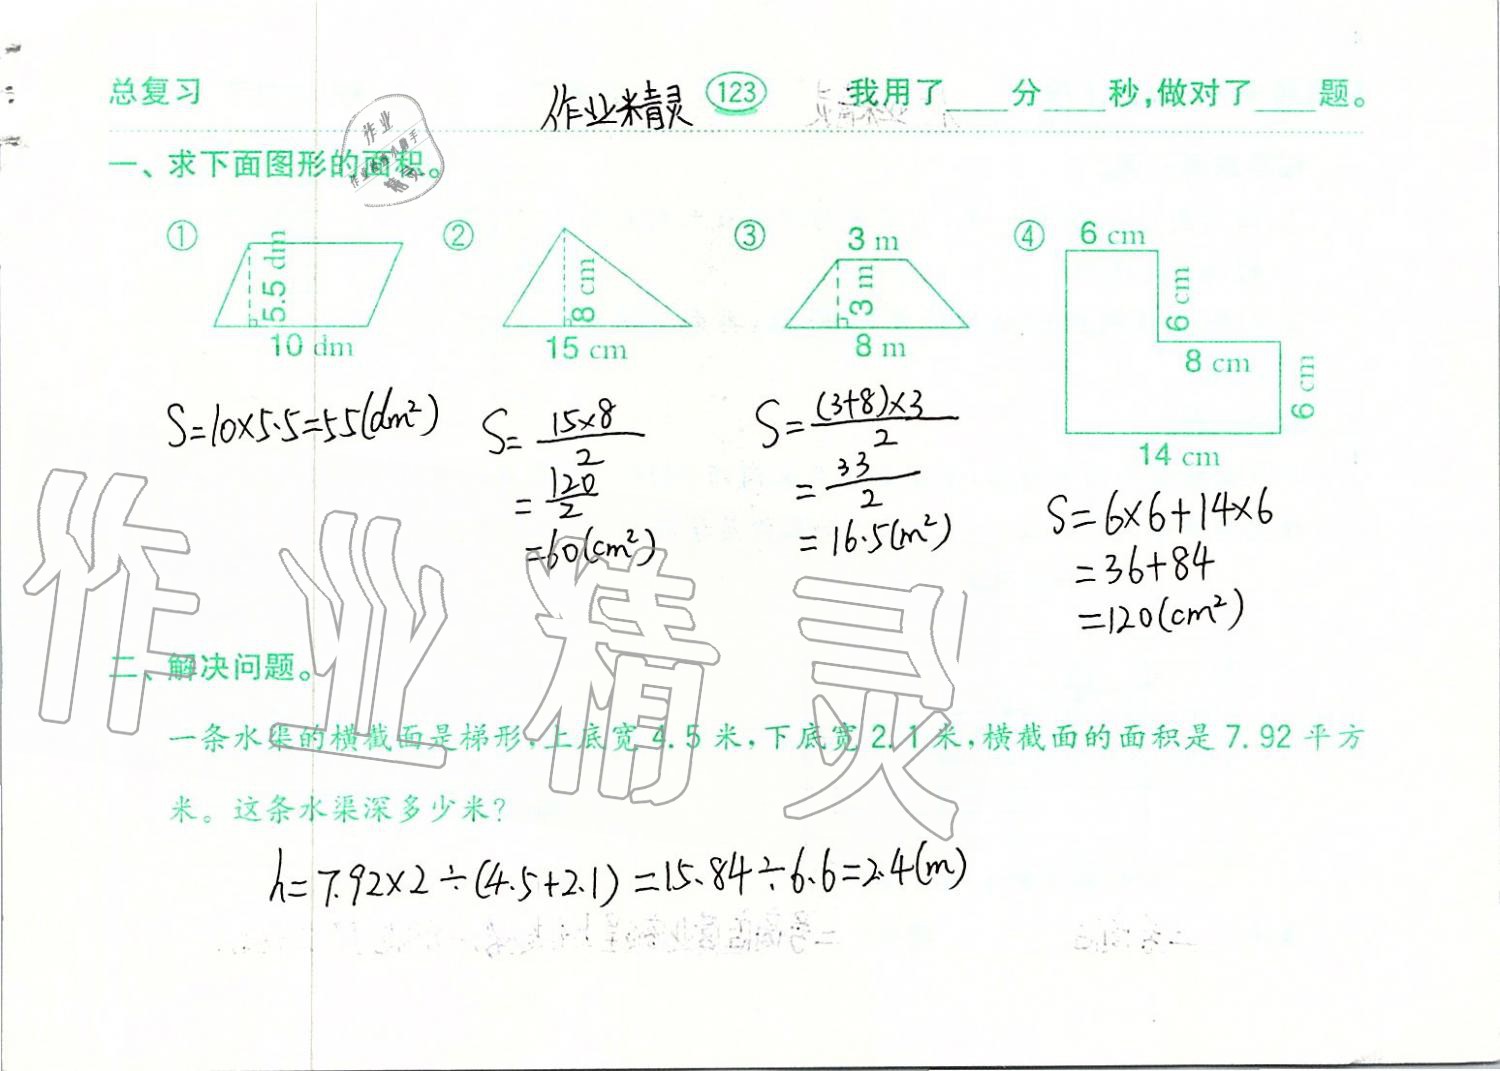 总复习 作业精灵 123 我用了____分____秒,做对了____题。
一、求下面图形的面积。
作业
精灵
① 5.5 dm 10 dm
② 8 cm 15 cm
③ 3 m 3 m 8 m
④ 6 cm 6 cm 8 cm 6 cm 14 cm
S=10×5.5=55(dm²)
S=15×8/2
=120/2
=60(cm²)
S=(3+8)×3/2
=33/2
=16.5(m²)
S=6×6+14×6
=36+84
=120(cm²)
作业精灵
二、解决问题。
一条水渠的横截面是梯形,上底宽 4.5 米,下底宽 2.1 米,横截面的面积是 7.92 平方
米。这条水渠深多少米?
h=7.92×2÷(4.5+2.1)=15.84÷6.6=2.4(m)